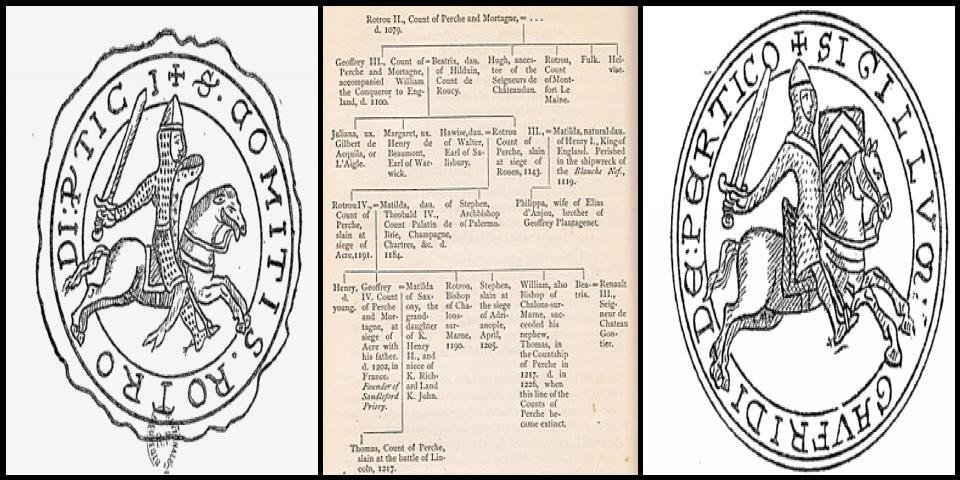 ✠ S. COMITIS. ROTRO DI: PTICI
Rotrou II., Count of Perche and Mortagne, = . . .
d. 1079.
Geoffrey III., Count of
Perche and Mortagne,
accompanied William
the Conqueror to Eng-
land, d. 1100.
=Beatrix, dau.
of Hilduin,
Count de
Roucy.
Hugh, ances-
tor of the
Seigneurs de
Châteaudun.
Rotrou,
Count
of Mont-
fort Le
Maine.
Fulk.
Hel-
vise.
Juliana, ux.
Gilbert de
Acquila, or
L'Aigle.
Margaret, ux.
Henry de
Beaumont,
Earl of War-
wick.
Hawise, dau.
of Walter,
Earl of Sa-
lisbury.
=Rotrou III.,
Count of
Perche, slain
at siege of
Rouen, 1143.
=Matilda, natural dau.
of Henry I., King of
England. Perished
in the shipwreck of
the Blanche Nef.,
1119.
Rotrou IV.,
Count of
Perche,
slain at
siege of
Acre, 1191.
=Matilda, dau. of
Theobald IV.,
Count Palatin de
Brie, Champagne,
Chartres, &c. d.
1184.
Stephen,
Archbishop
of Palermo.
Philippa, wife of Elias
d'Anjou, brother of
Geoffrey Plantagenet.
Henry,
d.
young.
Geoffrey
IV. Count
of Perche
and Mor-
tagne, at
siege of
Acre with
his father.
d. 1202, in
France.
Founder of
Sandleford
Priory.
=Matilda
of Sax-
ony, the
grand-
daughter
of K.
Henry
II., and
niece of
K. Rich-
ard Land
K. John.
Rotrou,
Bishop
of Cha-
lons-
sur-
Marne,
1190.
Stephen,
slain at
the siege
of Adri-
anople,
April,
1205.
William, also
Bishop of
Chalons-sur-
Marne, suc-
ceeded his
nephew,
Thomas, in
the Countship
of Perche in
1217. d. in
1226, when
this line of the
Counts of
Perche be-
came extinct.
Bea-
trix.
= Renault
III.,
Seig-
neur de
Chateau
Gon-
tier.
Thomas, Count of Perche,
slain at the battle of Lin-
coln, 1217.
✠ SIGILLVM GAVFRIDI DE: PERTICO